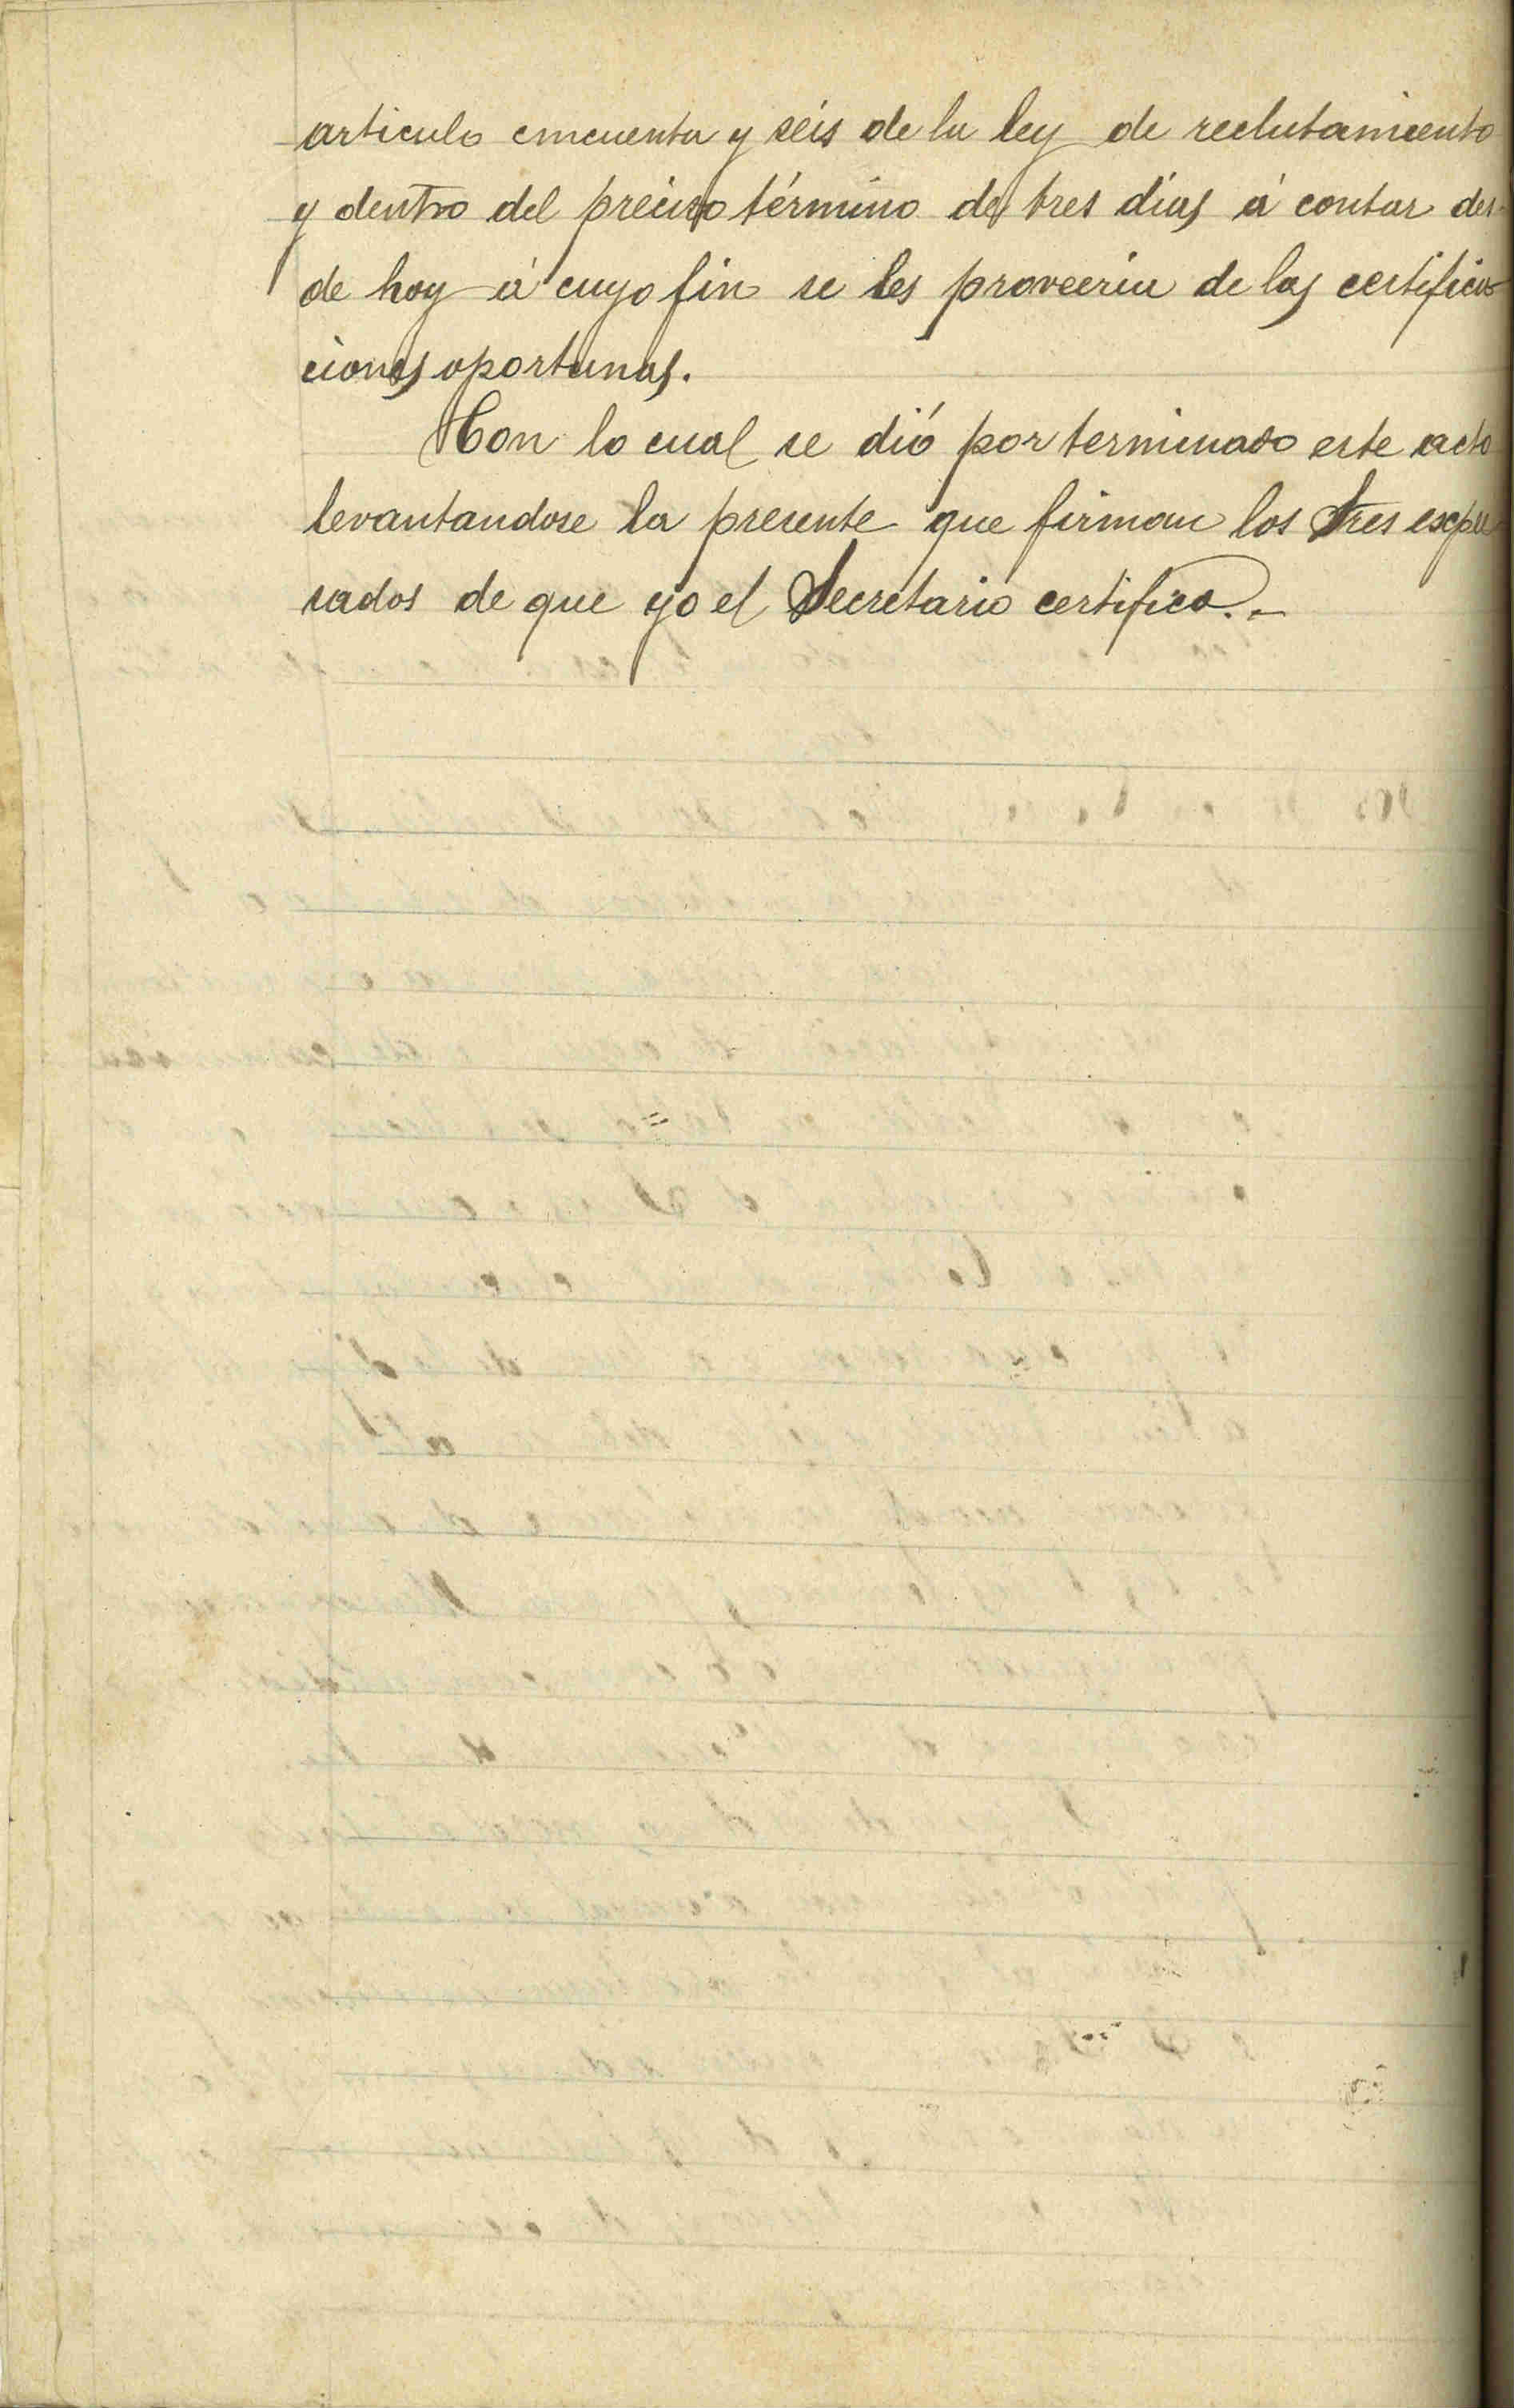 articulo cincuenta y séis de la ley de reclutamiento
y dentro del preciso término de tres días á contar des-
de hoy á cuyo fin se les proveeria de las certifica-
ciones oportunas.
Con lo cual se dió por terminado este acto
levantandose la presente que firman los Sres expre-
sados de que yo el Secretario certifico.-